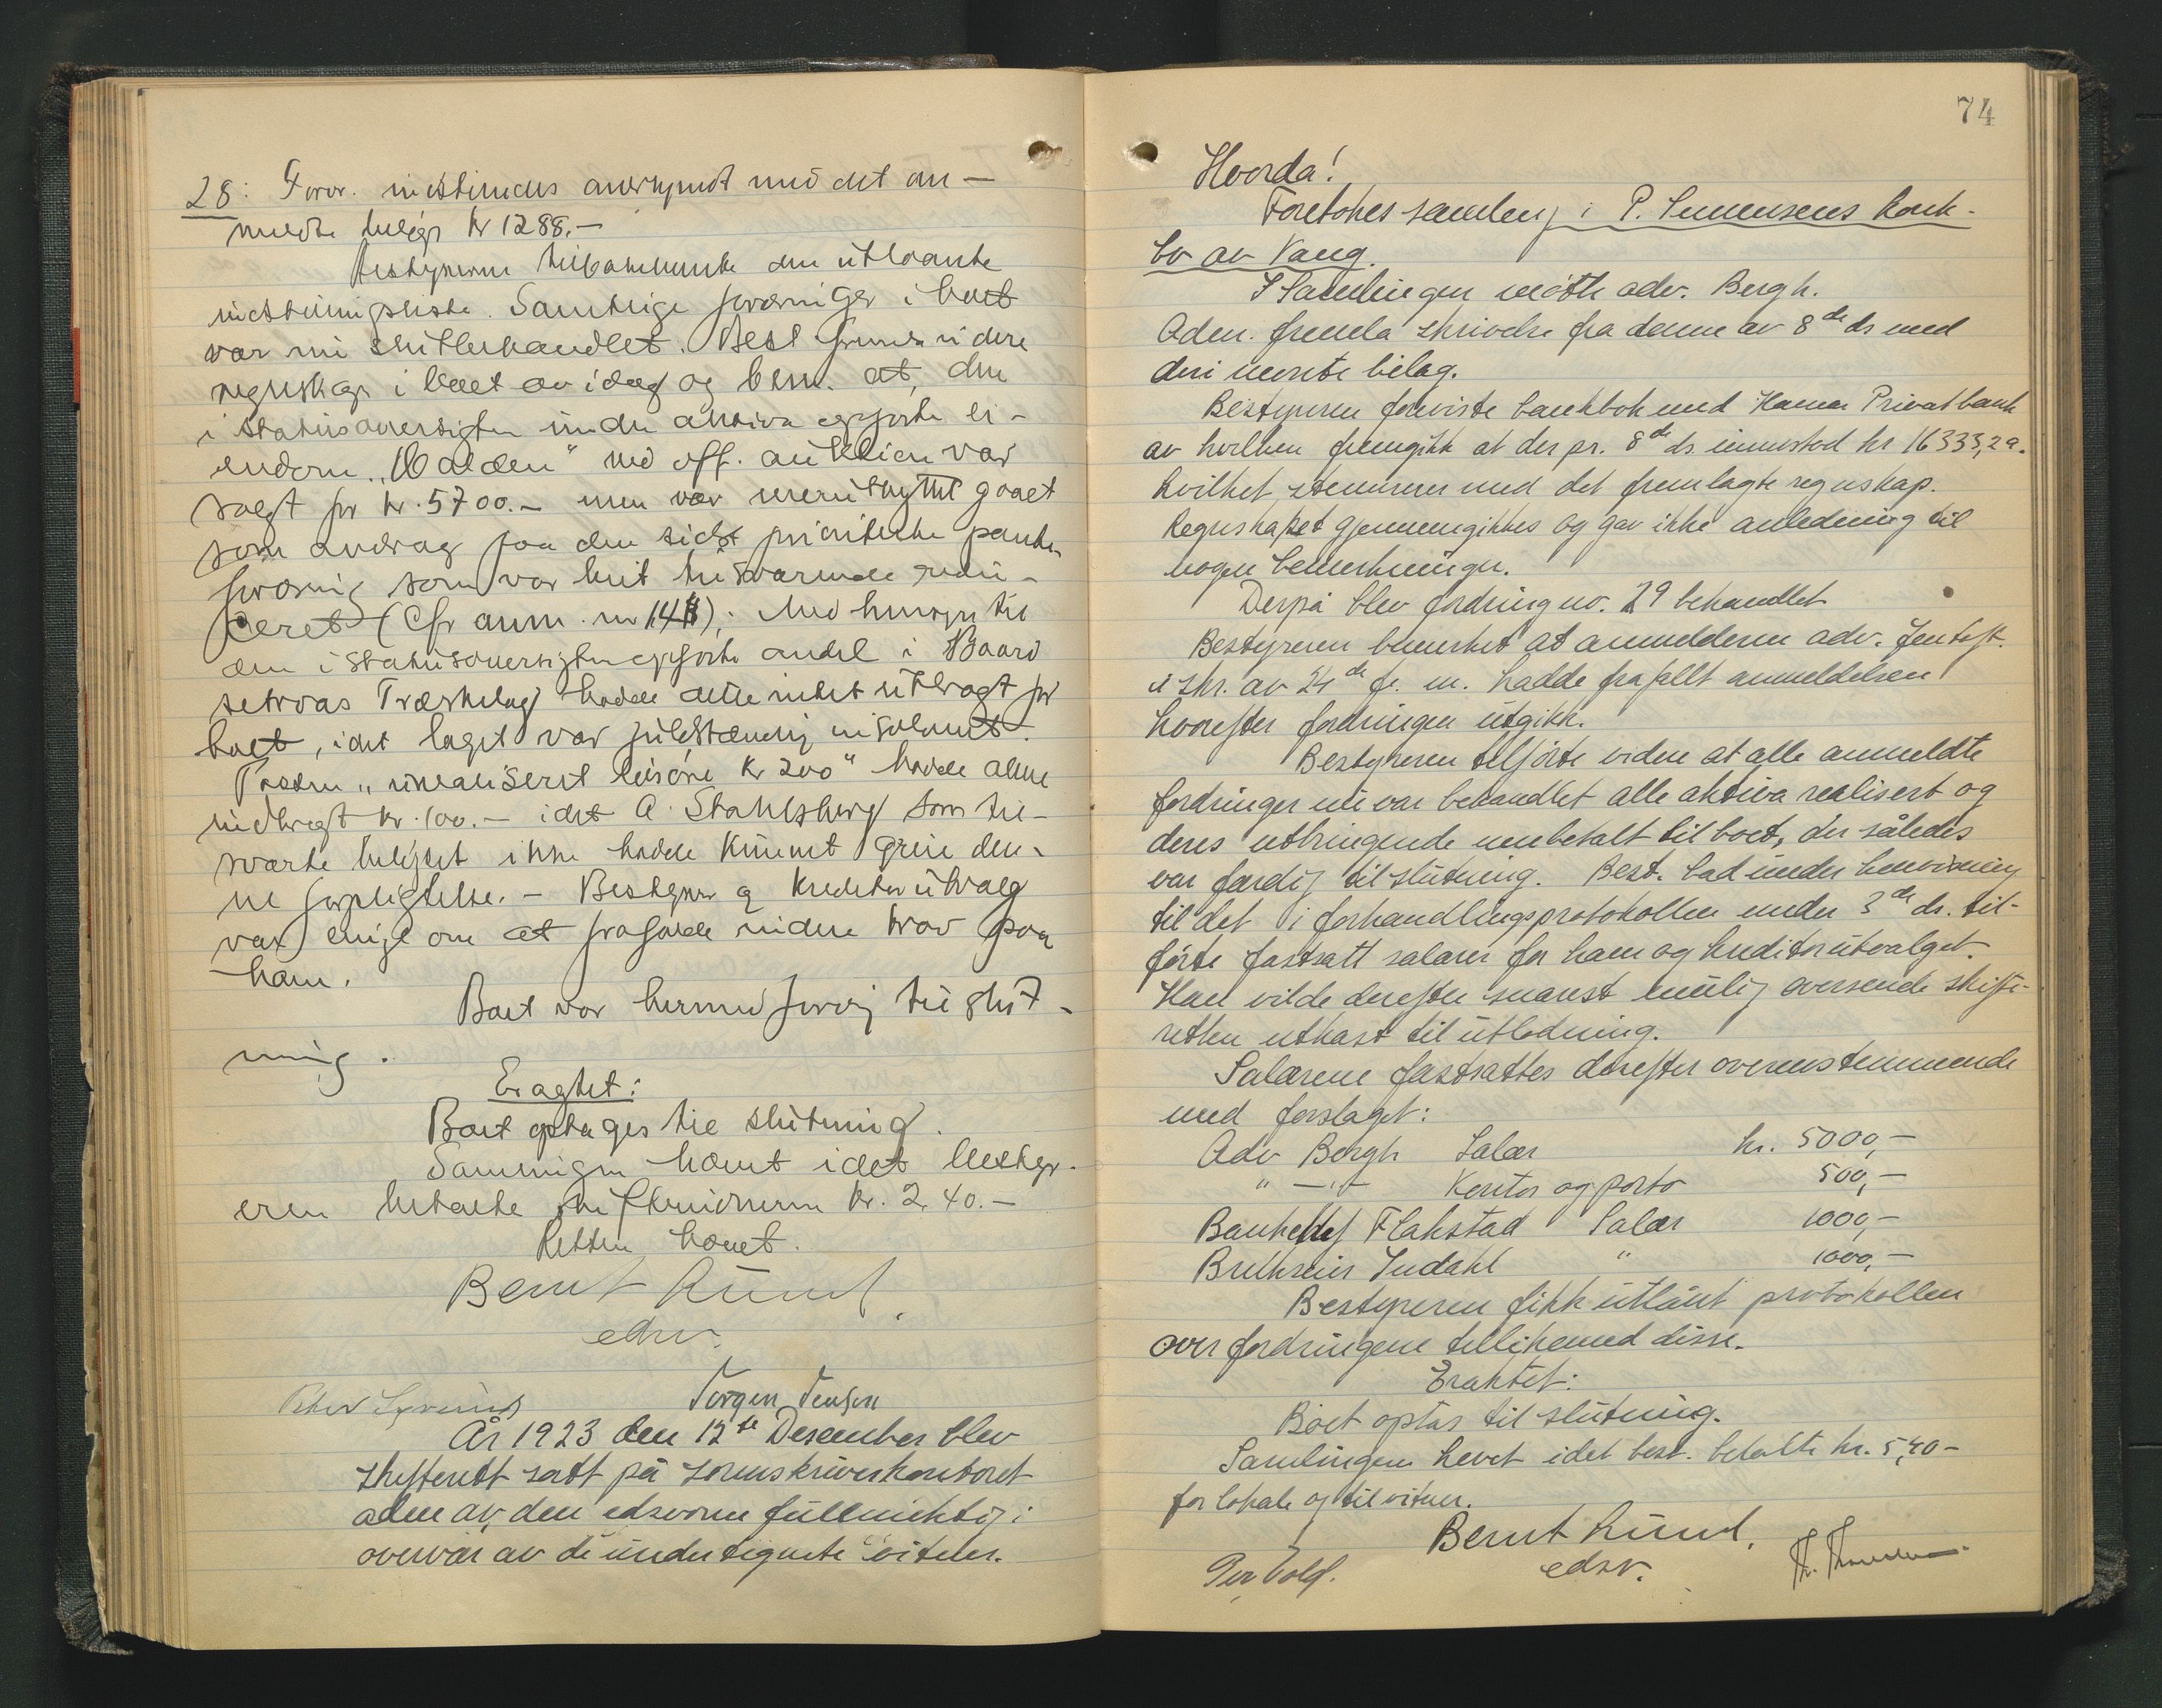 28: Fordr. indstilledes anerkjendt med det an-
meldte beløp kr 1288.-
Bestyreren tilbakeleverte den utlaante
indstillingsliste. Samtlige fordringer i boet
var nu slutbehandlet. Best. freml. videre
regnskap i boet av idag og bem. at den
i statusoversigten under aktiva opførte ei-
endom "Valden" ved off. auktion var
solgt for kr. 5700.- men var merutbyttet gaaet
som avdrag paa den sidst prioriterte pante-
fordring som var blit tilsvarende redu-
ceret (Cfr anm. nr 14). Med hensyn til
den i statusoversigten opførte andel i Baard
setraas Træskelag hadde dette intet utbragt for
boet, idet laget var fuldstændig insolvent.
Posten "urealisert løsøre kr 200" hadde alene
indbragt kr. 100.- idet A. Stahlsberg som til-
svarte beløpet ikke hadde kunnet greie den-
ne forpligtelse. - Bestyrer og kreditorutvalg
var enige om at frafalde videre krav paa
ham.
Boet var hermed færdig til slut-
ning.
Eragtet:
Boet optages til slutning.
Samlingen hævet idet bestyr-
eren betalte skiftevidnerne kr. 2.40.-
Retten hævet.
Bernt Lund.
edsv.
Jørgen Jensen
År 1923 den 12te Desember blev
skifterett satt på sorenskriverkontoret
adm av den edsvorne fullmektig i
overvær av de undertegnete vitner.
74
Hvorda!
Foretokes samling i P. Simensens konk-
bo av Vang.
I samlingen møtte adv. Bergh.
Adm. fremla skrivelse fra denne av 8de ds med
deri nevnte bilag.
Bestyreren foreviste bankbok med Hamar Privatbank
av hvilken fremgikk at der pr. 8de ds. innestod kr 16333,29.
hvilket stemmer med det fremlagte regnskap.
Regnskapet gjennemgikkes og gav ikke anledning til
nogen bemerkninger.
Derpå blev fordring no. 29 behandlet
Bestyreren bemerket at anmelderen adv. Jentoft.
i skr. av 24de f. m. hadde frafallt anmeldelsen
hvorefter fordringen utgikk.
Bestyreren tilførte videre at alle anmeldte
fordringer nu var behandlet alle aktiva realisert og
deres utbringende innbetalt til boet, der således
var færdig til slutning. Best. bad under henvisning
til det i forhandlingsprotokollen under 3de ds. til-
førte fastsatt salærer for ham og kreditorutvalget.
Han vilde derefter snarest mulig oversende skifte-
retten utkast til utlodning.
Salærene fastsattes derefter overensstemmende
med forslaget:
Adv Bergh Salær kr. 5000,-
" -"- Kontor og porto 500,-
Bankchef Flakstad Salær 1000,-
Brukseier Indahl " 1000,-
Bestyreren fikk utlånt protokollen
over fordringene tillikemed disse.
Eraktet:
Boet optas til slutning.
Samlingen hevet idet best. betalte kr. 5,40-
for lokale og til vitner.
Bernt Lund.
edsv.
Per Vold.